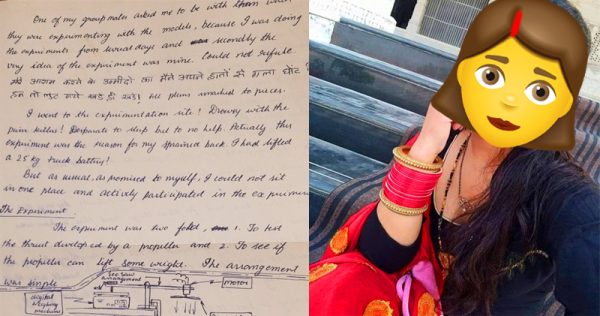 One of my groupmates asked me to be with them when
they were experimenting with the models, because I was doing
the experiments from several days and secondly the
very idea of the experiment was mine. Could not refuse.
मेरे आराम करने के उम्मीदों का मैंने अपने हाथों से गला घोंट
हम तो लुट गये खड़े ही खड़े! All plans smashed to pieces.
I went to the experimentation site! Drowsy with the
pain killers! Desparate to sleep but to no help. Actually this
experiment was the reason for my sprained back. I had lifted
a 25 kg truck battery!
But as usual, as promised to myself, I could not sit
in one place and actively participated in the experiment
The Experiment
The experiment was two fold, 1. To test
the thrust developed by a propeller and 2. To see if
the propeller can lift some weight. The arrangement
was simple
see saw
arrangement
motor
digital
weighing
machine